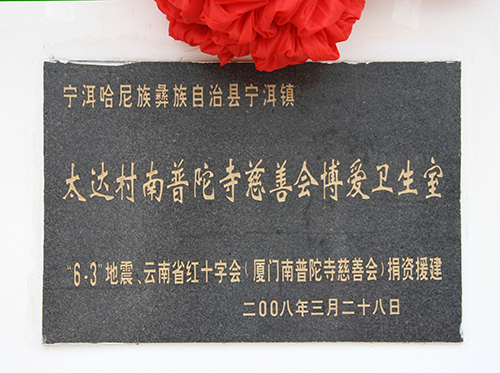 宁洱哈尼族彝族自治县宁洱镇
太达村南普陀寺慈善会博爱卫生室
“6-3”地震、云南省红十字会(厦门南普陀寺慈善会)捐资援建
二00八年三月二十八日